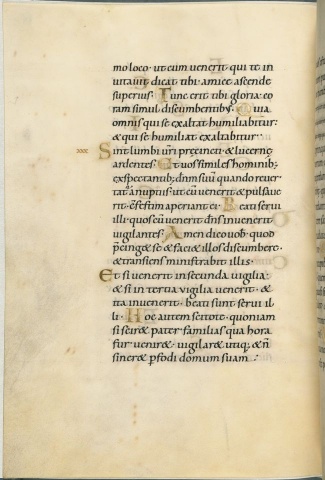 mo loco · ut cum uenerit qui te in
uitauit dicat tibi · amice ascende
superius · Tunc erit tibi gloria co
ram simul discumbentibus · Quia
omnis qui se exaltat humiliabitur :
& qui se humiliat exaltabitur ·
Sint lumbi uri precincti · & lucerne
ardentes · Et uos similes hominib;
exspectantib; dnm suum quando reuer
tat' a nuptiis · ut cu uenerit & pulsaue
rit · confestim aperiant ei · Beati serui
illi · quos cu uenerit dns inuenerit
uigilantes · Amen dico uob · quod
precing& se & faci& illos discumbere ·
& transiens ministrabit illis ·
Et si uenerit in secunda uigilia :
& si in tertia uigilia uenerit · &
ita inuenerit · beati sunt serui il
li · Hoc autem scitote · quoniam
si scir& pater familias qua hora
fur uenir& · uigilar& utiq; & n
siner& pfodi domum suam ·